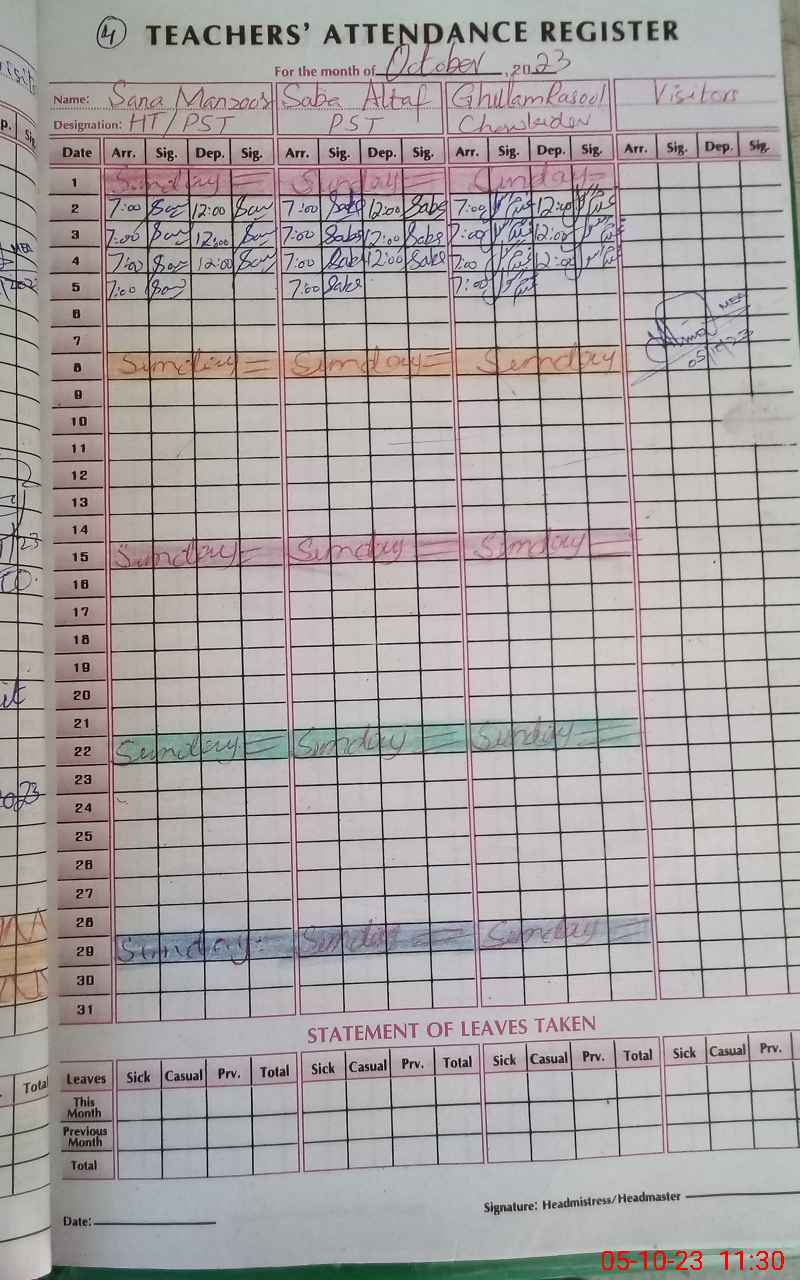 4 TEACHERS' ATTENDANCE REGISTER
For the month of October, 2023
Name: Sana Manzoor Saba Altaf Ghullam Rasool Visitors
Designation: HT/PST PST Chowkidar
Date Arr. Sig. Dep. Sig. Arr. Sig. Dep. Sig. Arr. Sig. Dep. Sig. Arr. Sig. Dep. Sig.
1 Sunday Sunday Sunday
2 7:00 12:00 7:00 Saba 12:00 Saba 7:00 12:00
3 7:00 12:00 7:00 Saba 12:00 Saba 7:00 12:00
4 7:00 12:00 7:00 Saba 12:00 Saba 7:00 12:00
5 7:00 7:00 Saba 7:00
6
7
MEA
05/10/23
8 Sunday Sunday Sunday
9
10
11
12
13
14
15 Sunday Sunday Sunday
16
17
18
19
20
21
22 Sunday Sunday Sunday
23
24
25
26
27
28
29 Sunday Sunday Sunday
30
31
STATEMENT OF LEAVES TAKEN
Leaves Sick Casual Prv. Total Sick Casual Prv. Total Sick Casual Prv. Total Sick Casual Prv.
This Month
Previous Month
Total
Date:
Signature: Headmistress/Headmaster
05-10-23 11:30